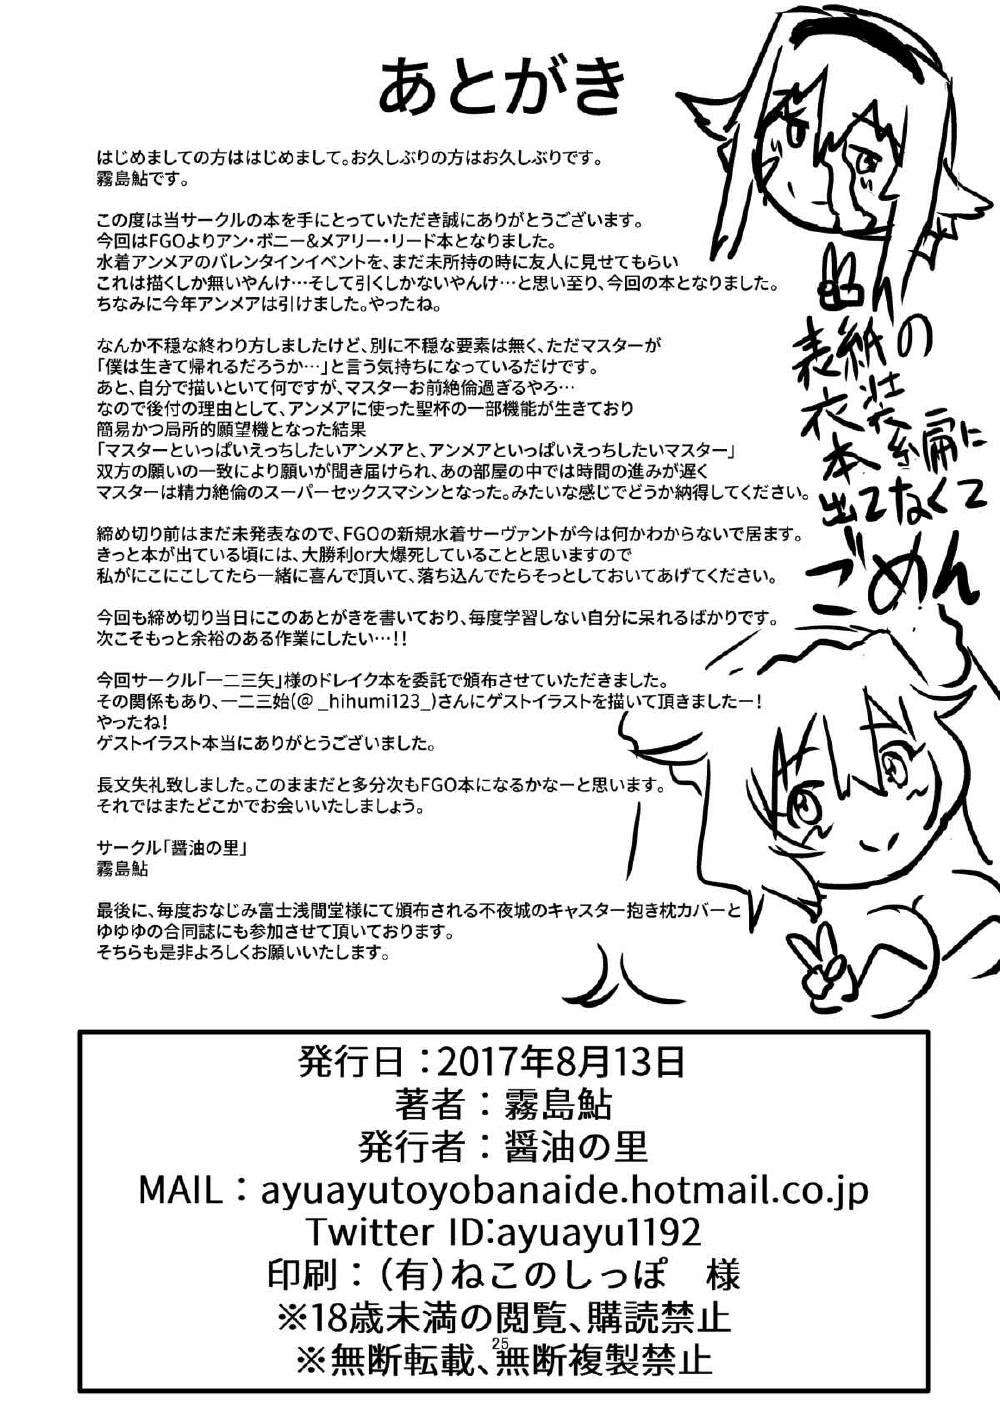 あとがき
はじめましての方ははじめまして。お久しぶりの方はお久しぶりです。
霧島鮎です。
この度は当サークルの本を手にとっていただき誠にありがとうございます。
今回はFGOよりアン・ボニー&メアリー・リード本となりました。
水着アンメアのバレンタインイベントを、まだ未所持の時に友人に見せてもらい
これは描くしか無いやんけ…そして引くしかないやんけ…と思い至り、今回の本となりました。
ちなみに今年アンメアは引けました。やったね。
なんか不穏な終わり方しましたけど、別に不穏な要素は無く、ただマスターが
「僕は生きて帰れるだろうか…」と言う気持ちになっているだけです。
あと、自分で描いといて何ですが、マスターお前絶倫過ぎるやろ…
なので後付の理由として、アンメアに使った聖杯の一部機能が生きており
簡易かつ局所的願望機となった結果
「マスターといっぱいえっちしたいアンメアと、アンメアといっぱいえっちしたいマスター」
双方の願いの一致により願いが聞き届けられ、あの部屋の中では時間の進みが遅く
マスターは精力絶倫のスーパーセックスマシンとなった。みたいな感じでどうか納得してください。
締め切り前はまだ未発表なので、FGOの新規水着サーヴァントが今は何かわからないで居ます。
きっと本が出ている頃には、大勝利or大爆死していることと思いますので
私がにこにこしてたら一緒に喜んで頂いて、落ち込んでたらそっとしておいてあげてください。
今回も締め切り当日にこのあとがきを書いており、毎度学習しない自分に呆れるばかりです。
次こそもっと余裕のある作業にしたい…!!
今回サークル「一二三矢」様のドレイク本を委託で頒布させていただきました。
その関係もあり、一二三始(@_hihumi123_)さんにゲストイラストを描いて頂きましたー!
やったね!
ゲストイラスト本当にありがとうございました。
長文失礼致しました。このままだと多分次もFGO本になるかなーと思います。
それではまたどこかでお会いいたしましょう。
サークル「醤油の里」
霧島鮎
最後に、毎度おなじみ富士浅間堂様にて頒布される不夜城のキャスター抱き枕カバーと
ゆゆゆの合同誌にも参加させて頂いております。
そちらも是非よろしくお願いいたします。
表紙の
衣装
本編に
出てなくて
ごめん
発行日:2017年8月13日
著者:霧島鮎
発行者:醤油の里
MAIL:ayuayutoyobanaide.hotmail.co.jp
Twitter ID:ayuayu1192
印刷:(有)ねこのしっぽ 様
※18歳未満の閲覧、購読禁止
25
※無断転載、無断複製禁止